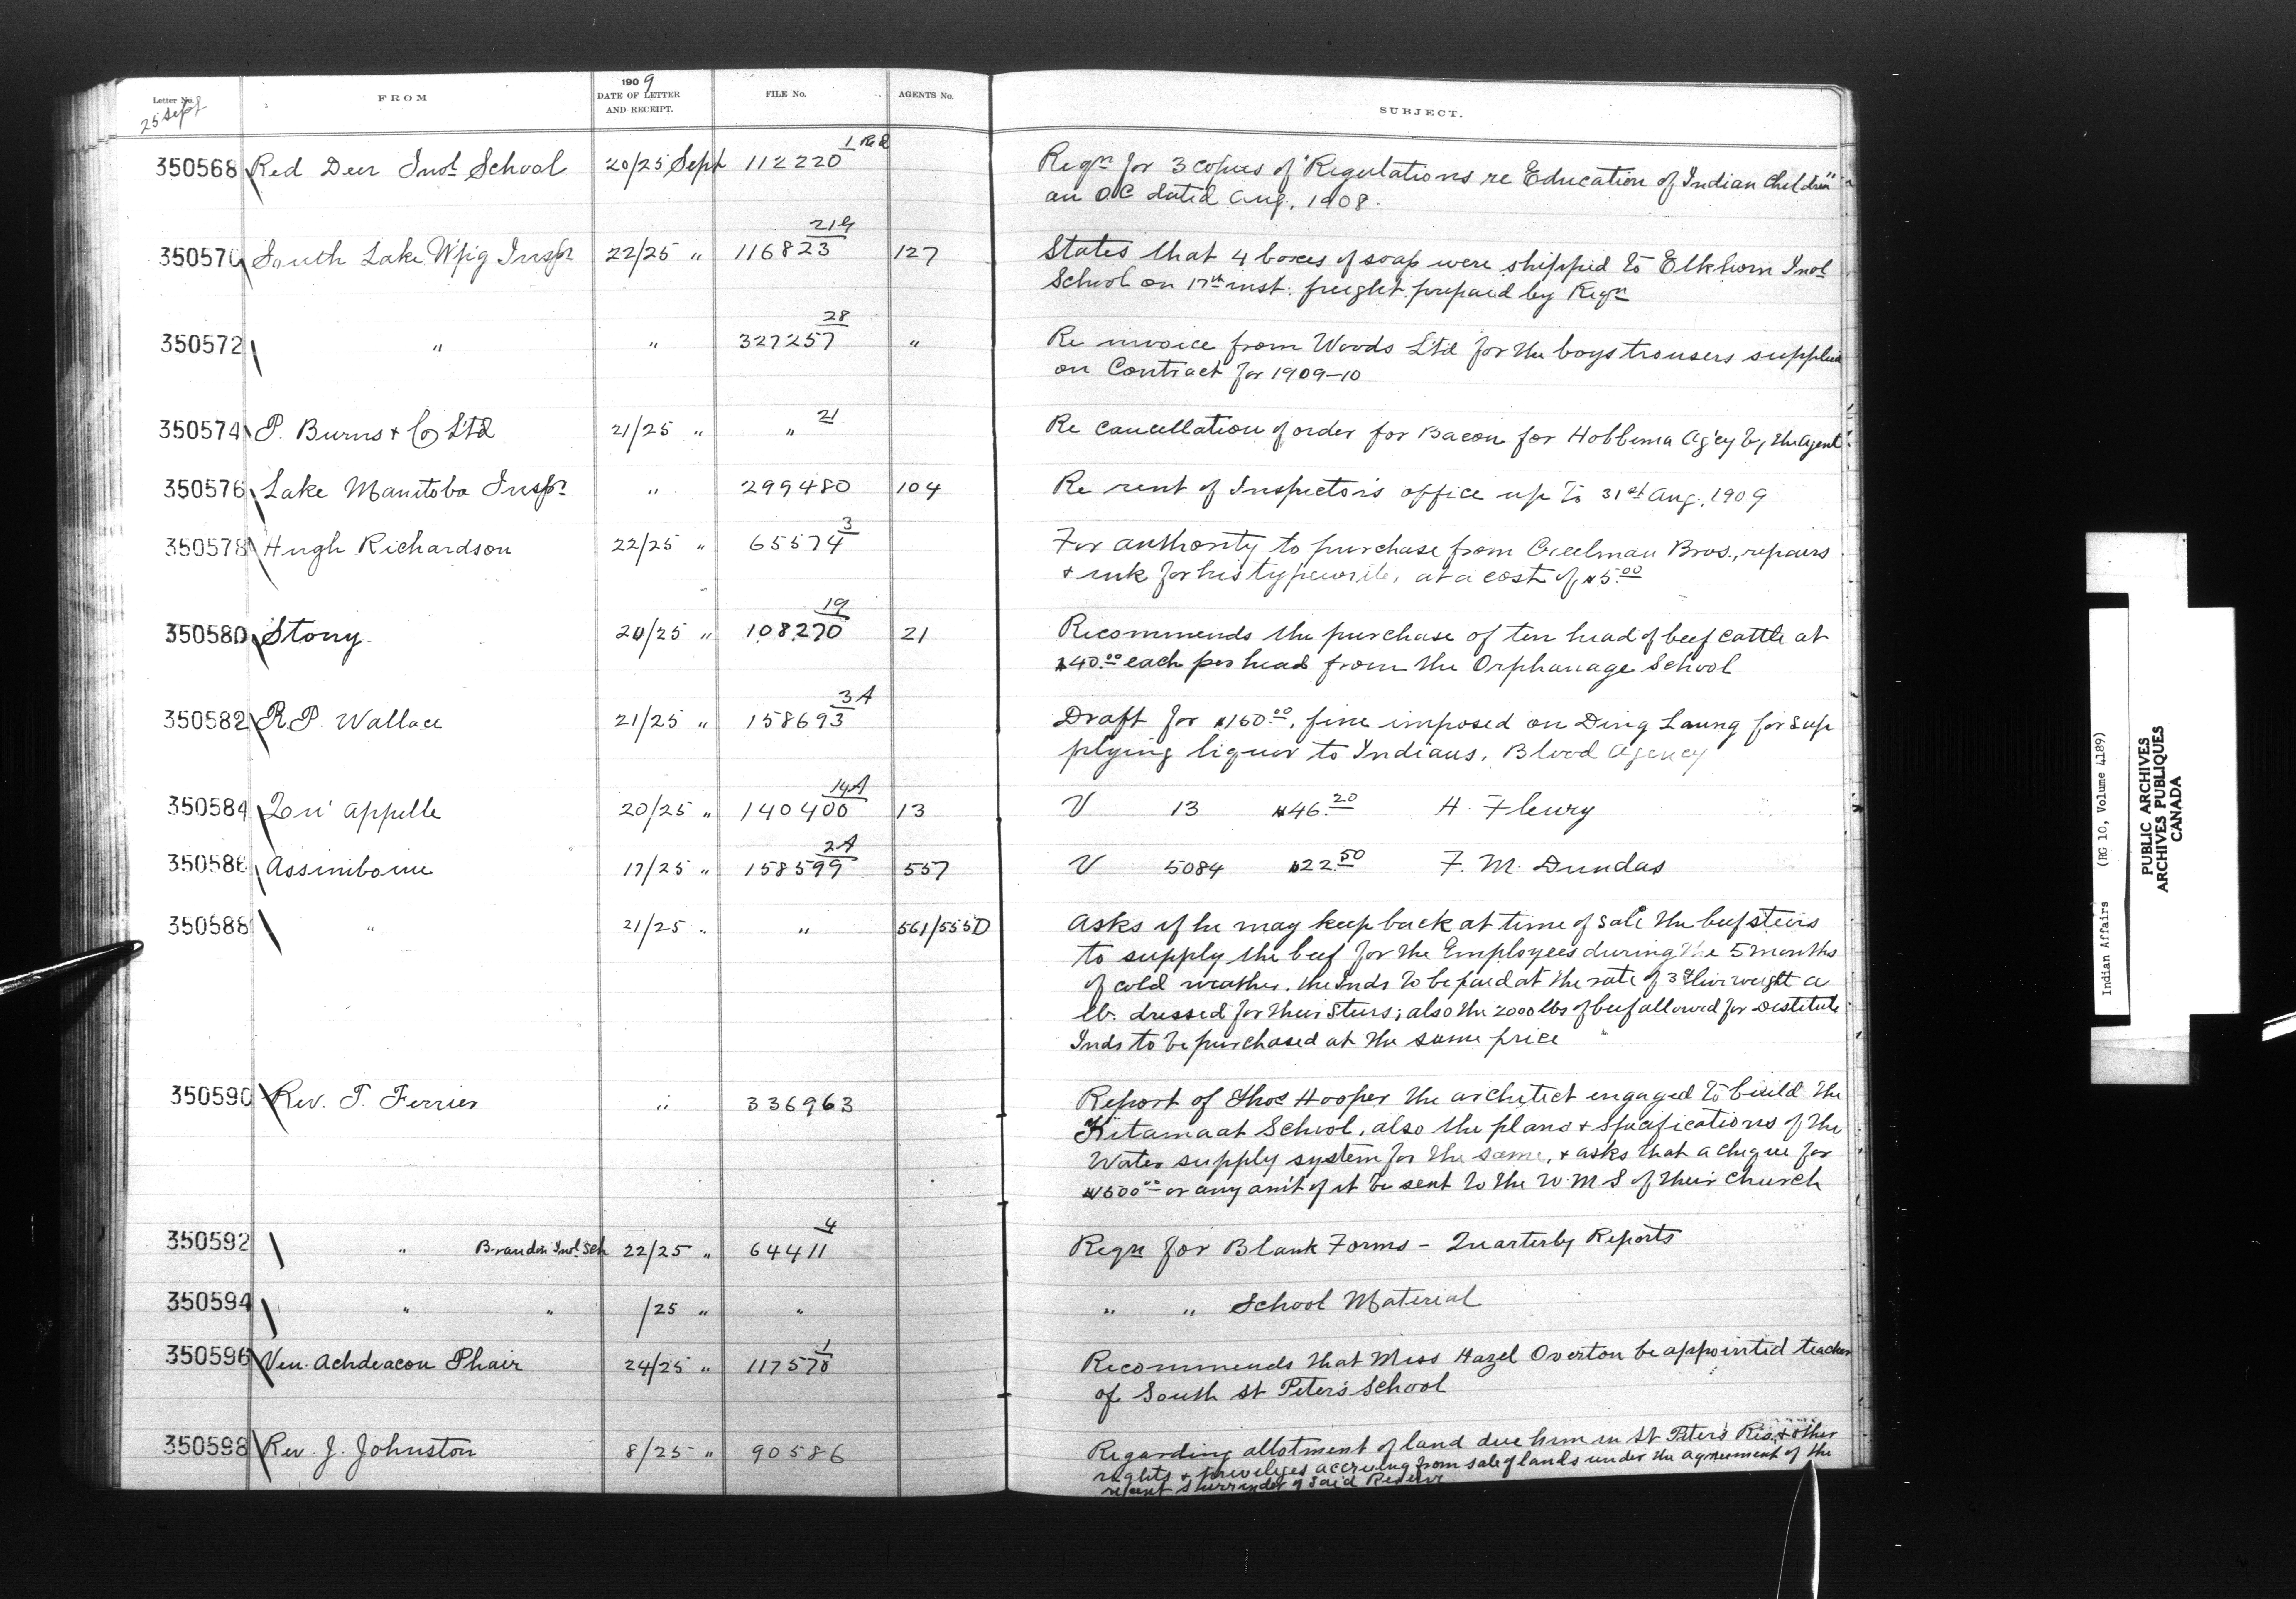 Letter No. FROM 1909 DATE OF LETTER AND RECEIPT. FILE No. AGENTS No. SUBJECT.
25 Sept
350568 Red Deer Indl School 20/25 Sept 112220 1 Reqn for 3 copies of "Regulations re Education of Indian Children"
an OC dated Aug. 1908.
350570 South Lake W'pig Inspr 22/25 " 116823 21G 127 States that 4 boxes of soap were shipped to Elkhorn Indl
School on 17th inst. freight prepaid by Reqn
350572 " " 327257 28 " Re invoice from Woods Ltd for the boys trousers supplied
on Contract for 1909-10
350574 P. Burns & Co Ltd 21/25 " " 21 Re cancellation of order for Bacon for Hobbema Ag'cy by the Agent
350576 Lake Manitoba Inspr " 299480 104 Re rent of Inspector's office up to 31st Aug. 1909
350578 Hugh Richardson 22/25 " 65574 3 For authority to purchase from Creelman Bros., repairs
& ink for his typewriter, at a cost of $5.00
350580 Stony 20/25 " 108270 19 21 Recommends the purchase of ten head of beef cattle at
$40.00 each per head from the Orphanage School
350582 R.P. Wallace 21/25 " 158693 3A Draft for $150.00, fine imposed on Ding Laung for sup
plying liquor to Indians, Blood Agency
350584 Qu'Appelle 20/25 " 140400 14A 13 V 13 $46.20 H. Fleury
350586 Assiniboine 17/25 " 158599 2A 557 V 5084 $22.50 F. M. Dundas
350588 " 21/25 " " 561/555D Asks if he may keep back at time of sale the beef steers
to supply the beef for the Employees during the 5 months
of cold weather. the Inds to be paid at the rate of 3¢ live weight a
lb. dressed for their Steers; also the 2000 lbs of beef allowed for Destitute
Inds to be purchased at the same price
350590 Rev. T. Ferrier " 336963 Report of Thos Hooper the architect engaged to build the
Kitamaat School, also the plans & specifications of the
Water supply system for the same, & asks that a cheque for
or any am't of it be sent to the W.M.S of their Church
350592 " Brandon Indl Sch 22/25 " 64411 4 Reqn for Blank Forms - Quarterly Reports
350594 " " /25 " " " " School Material
350596 Ven. Achdeacon Phair 24/25 " 117570 1 Recommends that Miss Hazel Overton be appointed teacher
of South St Peter's School
350598 Rev. J. Johnston 8/25 " 90586 Regarding allotment of land due him in St Peter's Res. & other
rights & privileges accruing from sale of lands under the agreement of the
recent surrender of said Reserve
Indian Affairs (RG 10, Volume 4189)
PUBLIC ARCHIVES
ARCHIVES PUBLIQUES
CANADA